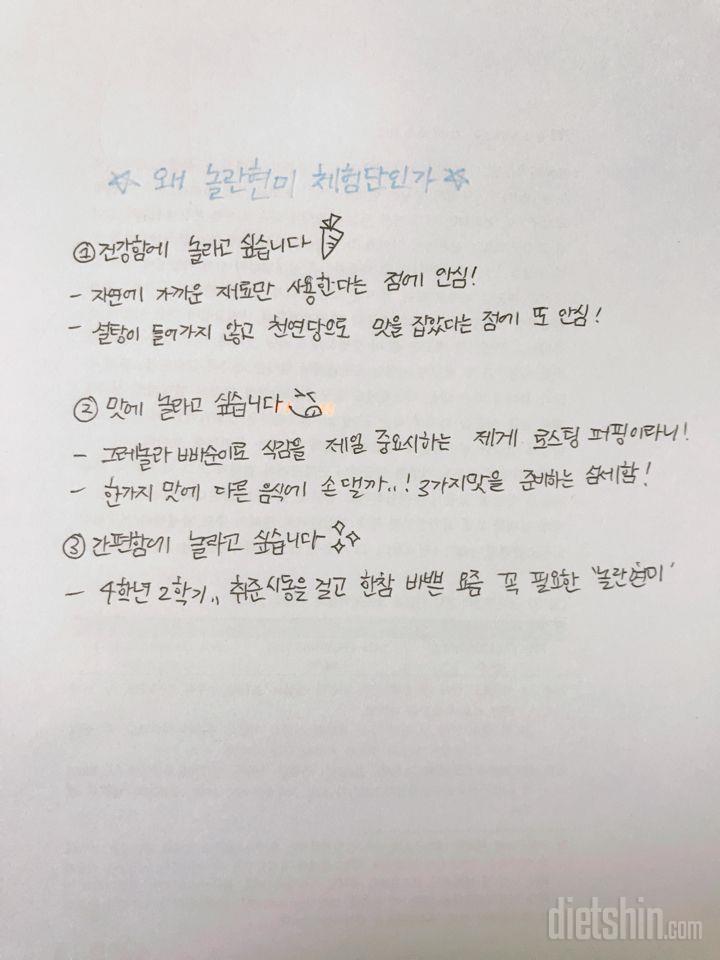 왜 놀란현미 체험단인가
① 건강함에 놀라고 싶습니다
- 자연에 가까운 재료만 사용한다는 점에 안심!
- 설탕이 들어가지 않고 천연당으로 맛을 잡았다는 점에 또 안심!
② 맛에 놀라고 싶습니다
- 그레놀라 빠순이로 식감을 제일 중요시하는 제게 로스팅 퍼핑이라니!
- 한가지 맛에 다른 음식에 손댈까..! 3가지맛을 준비하는 섬세함!
③ 간편함에 놀라고 싶습니다
- 4학년 2학기.. 취준시동을 걸고 한참 바쁜 요즘 꼭 필요한 '놀란현미'
dietshin.com